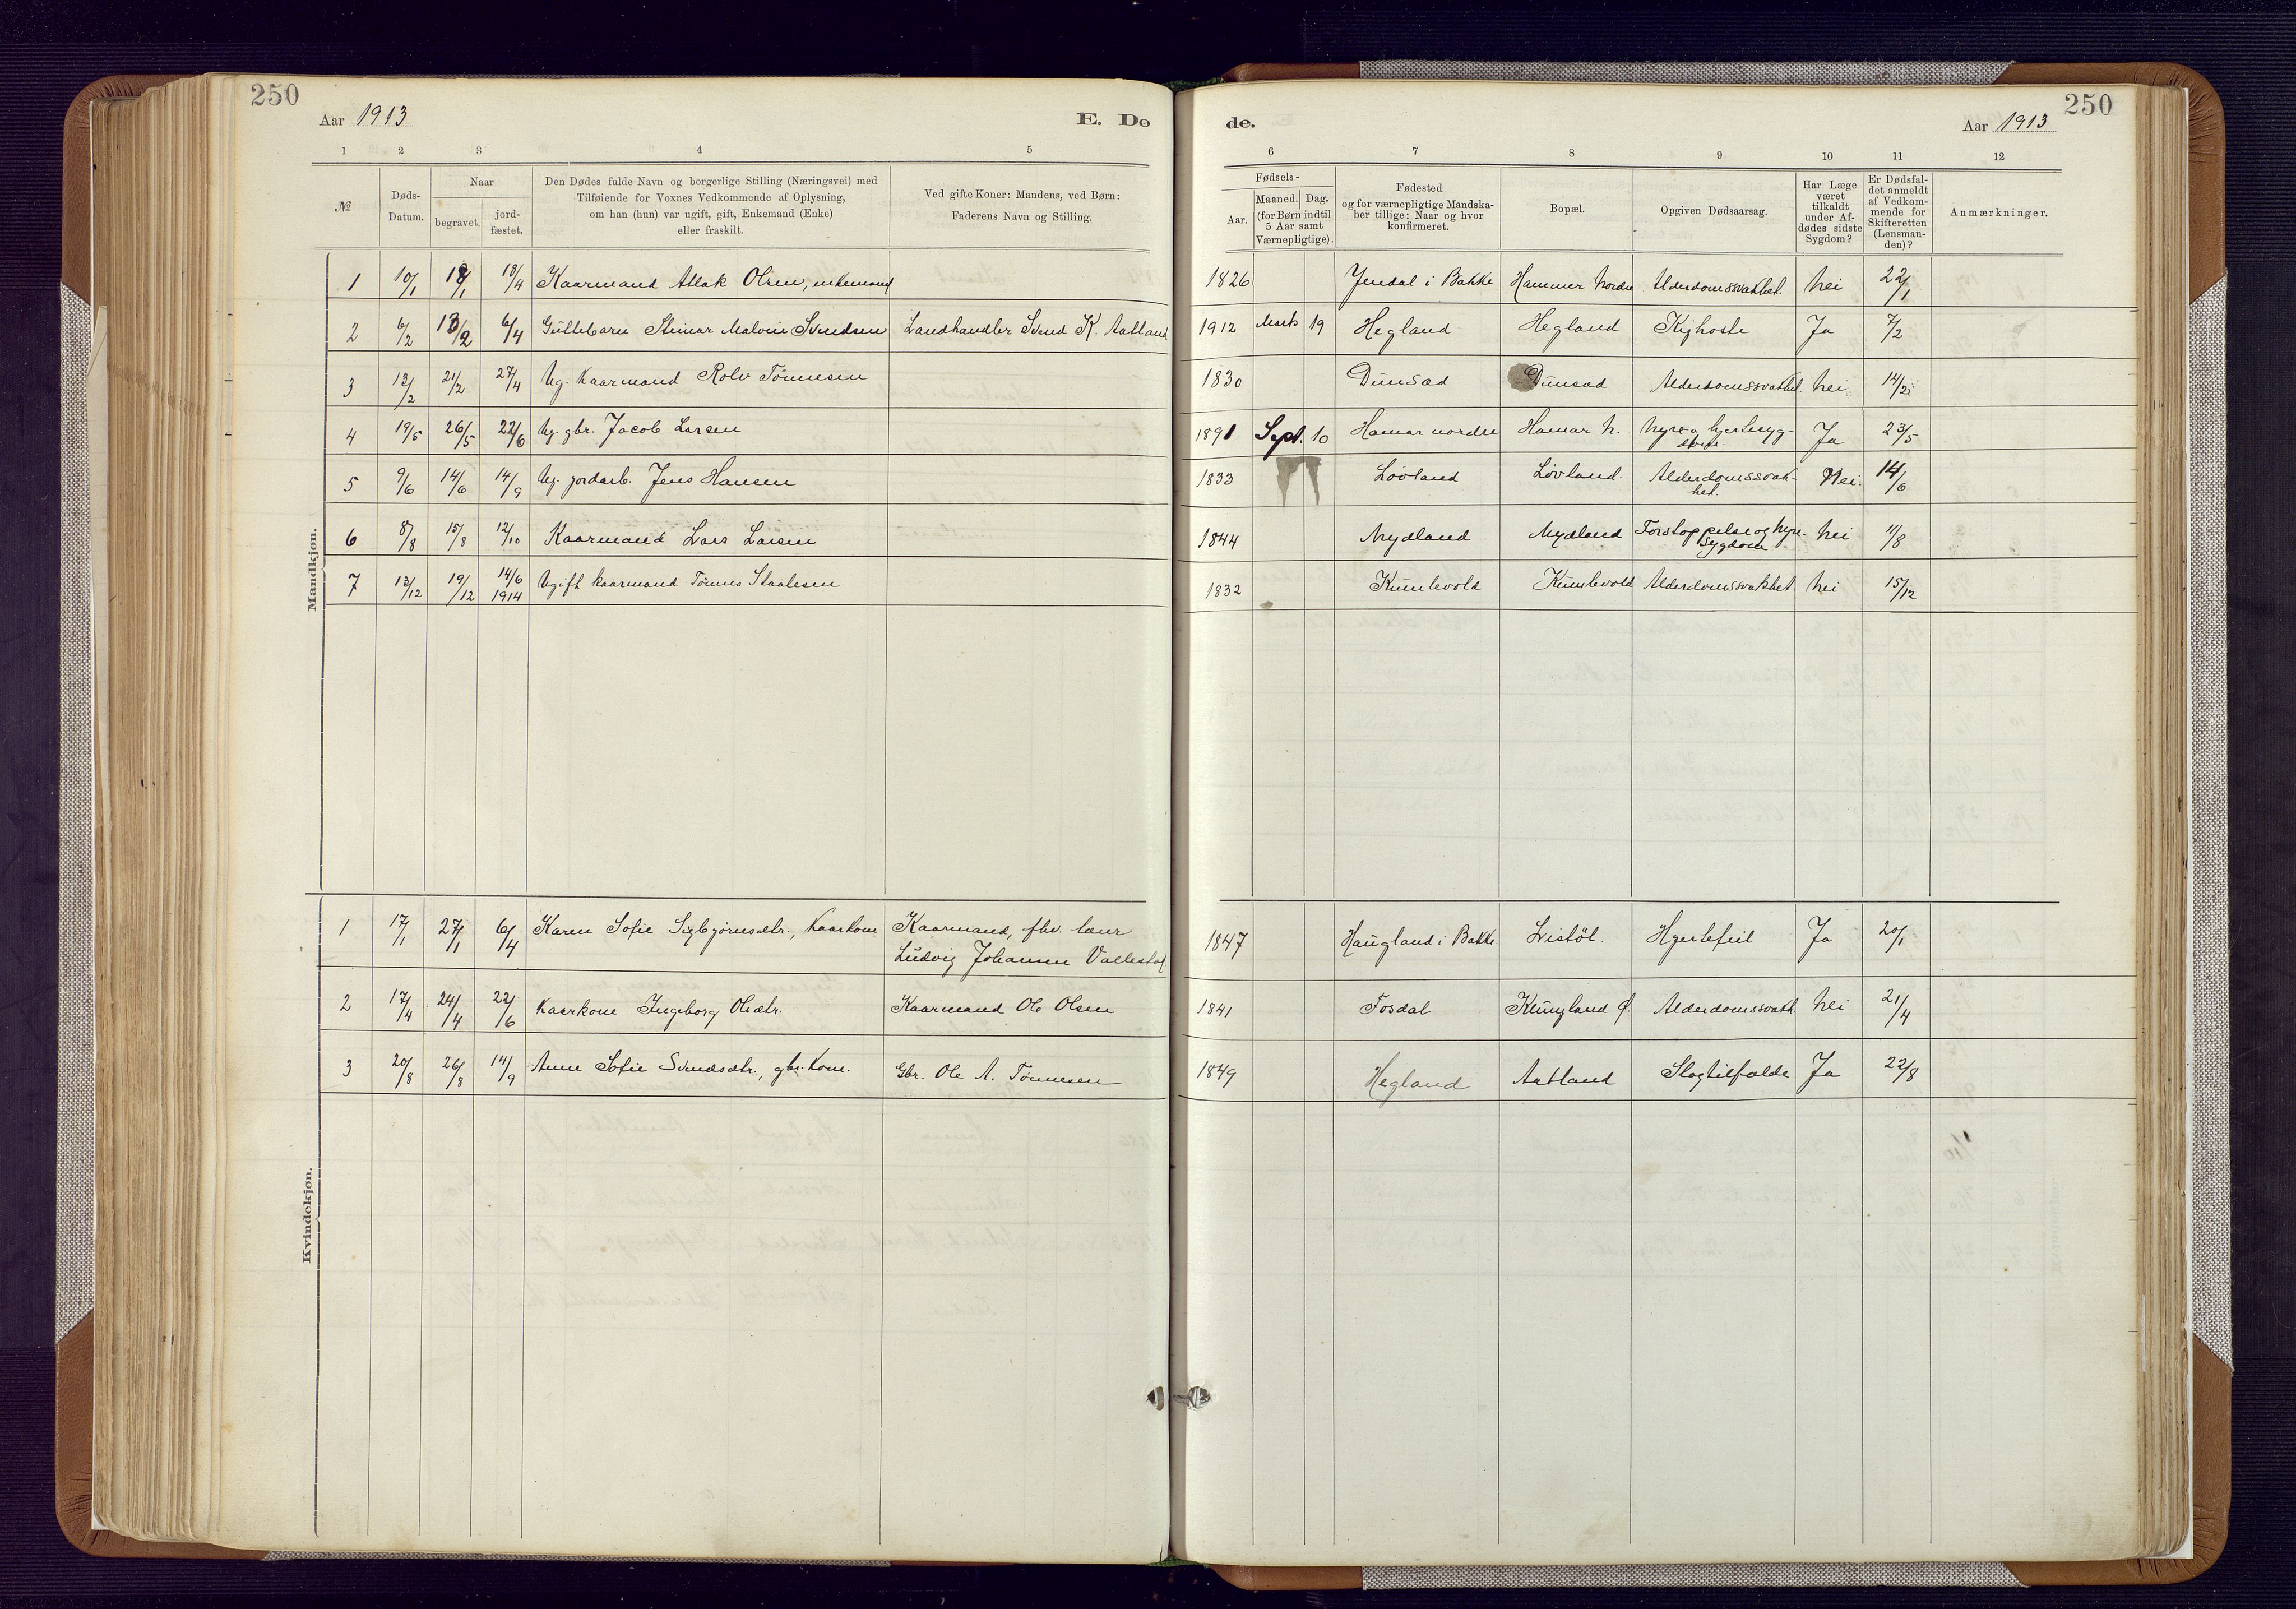 250
Aar 1913
E. Dø
de.
Aar 1913
250
1 2 3 4 5
6 7 8 9 10 11 12
№
Døds-
Datum.
Naar
begravet.
jord-
fæstet.
Den Dødes fulde Navn og borgerlige Stilling (Næringsvei) med
Tilføiende for Voxnes Vedkommende af Oplysning,
om han (hun) var ugift, gift, Enkemand (Enke)
eller fraskilt.
Ved gifte Koner: Mandens, ved Børn:
Faderens Navn og Stilling.
Fødsels-
Aar.
Maaned. Dag.
(for Børn indtil
5 Aar samt
Værnepligtige).
Fødested
og for værnepligtige Mandska-
ber tillige: Naar og hvor
konfirmeret.
Bopæl.
Opgiven Dødsaarsag.
Har Læge
været
tilkaldt
under Af-
dødes sidste
Sygdom?
Er Dødsfal-
det anmeldt
af Vedkom-
mende for
Skifteretten
(Lensman-
den)?
Anmærkninger.
Mandkjøn.
1 10/1 18/1 13/4 Kaarmand Atlak Olsen, enkemand 1826 Jendal i Bakke Hammer nordre Alderdomssvakhet. Nei 22/1
2 6/2 13/2 6/4 Guttebarn Steinar Malvin Svendsen Landhandler Svend K. Aatland 1912 Marts 19 Hegland Hegland Kighoste Ja 7/2
3 12/2 21/2 27/4 Ug. kaarmand Rolv Tønnesen 1830 Dunsæd Dunsæd Alderdomssvakhet. Nei 14/2
4 19/5 26/5 22/6 Ug. gbr. Jacob Larsen 1891 Sept. 10 Hamar nordre Hamar n. Nyre og hjertesyg-
dom. Ja 23/5
5 9/6 14/6 14/9 Ug. jordarb. Jens Hansen 1833 Løvland Løvland. Alderdomssvak-
het. Nei. 14/6
6 8/8 15/8 12/10 Kaarmand Lars Larsen 1844 Mydland Mydland Forstoppelse og nyre-
sygdom Nei 11/8
7 13/12 19/12 14/6 1914 Ugift kaarmand Tønnes Staalesen 1832 Kumlevold Kumlevold Alderdomssvakhet Nei 15/12
Kvindekjøn.
1 17/1 27/1 6/4 Karen Sofie Sigbjørnsdtr., kaarkone Kaarmand, fhv. lærer
Ludvig Johansen Vallestøl 1847 Haugland i Bakke. Listøl. Hjertefeil Ja 20/1
2 17/4 24/4 22/6 Kaarkone Ingeborg Olsdtr. Kaarmand Ole Olsen 1841 Fosdal Klungland Ø. Alderdomssvakh. Nei 21/4
3 20/8 26/8 14/9 Anne Sofie Svendsdtr., gbr. kone. Gbr. Ole A. Tønnesen 1849 Hegland Aatland Slagtilfælde Ja 22/8